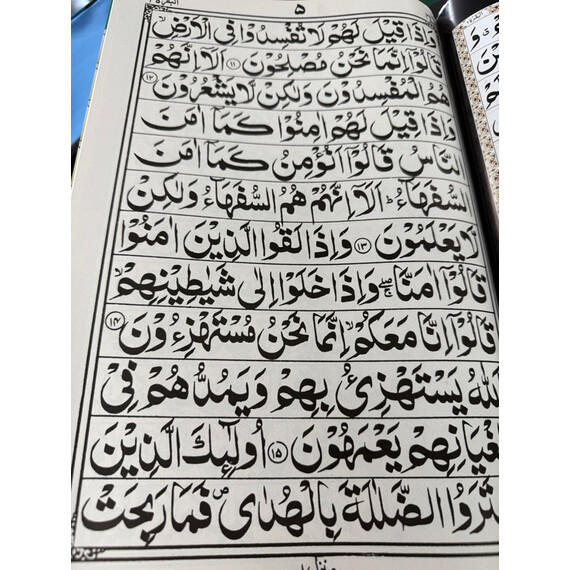 ۵
وَاِذَا قِيْلَ لَهُمْ لَا تُفْسِدُوْا فِي الْاَرْضِۙ
قَالُوْٓا اِنَّمَا نَحْنُ مُصْلِحُوْنَ ۱۱ اَلَآ اِنَّهُمْ
هُمُ الْمُفْسِدُوْنَ وَلٰكِنْ لَّا يَشْعُرُوْنَ ۱۲
وَاِذَا قِيْلَ لَهُمْ اٰمِنُوْا كَمَآ اٰمَنَ
النَّاسُ قَالُوْٓا اَنُؤْمِنُ كَمَآ اٰمَنَ
السُّفَهَآءُ ؕ اَلَآ اِنَّهُمْ هُمُ السُّفَهَآءُ وَلٰكِنْ
لَّا يَعْلَمُوْنَ ۱۳ وَاِذَا لَقُوا الَّذِيْنَ اٰمَنُوْا
قَالُوْٓا اٰمَنَّا ۖۚ وَاِذَا خَلَوْا اِلٰى شَيٰطِيْنِهِمْۙ
قَالُوْٓا اِنَّا مَعَكُمْۙ اِنَّمَا نَحْنُ مُسْتَهْزِءُوْنَ ۱۴
اَللّٰهُ يَسْتَهْزِئُ بِهِمْ وَيَمُدُّهُمْ فِيْ
طُغْيَانِهِمْ يَعْمَهُوْنَ ۱۵ اُولٰٓئِكَ الَّذِيْنَ
اشْتَرَوُا الضَّلٰلَةَ بِالْهُدٰى ۪ فَمَا رَبِحَتْ